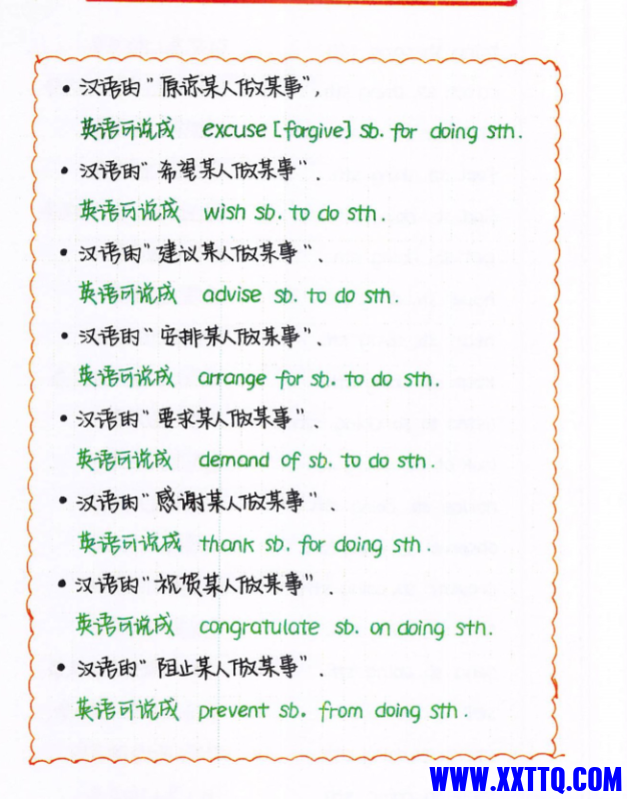 • 汉语的“原谅某人做某事”,
英语可说成 excuse [forgive] sb. for doing sth.
• 汉语的“希望某人做某事”.
英语可说成 wish sb. to do sth.
• 汉语的“建议某人做某事”.
英语可说成 advise sb. to do sth.
• 汉语的“安排某人做某事”.
英语可说成 arrange for sb. to do sth.
• 汉语的“要求某人做某事”.
英语可说成 demand of sb. to do sth.
• 汉语的“感谢某人做某事”.
英语可说成 thank sb. for doing sth.
• 汉语的“祝贺某人做某事”.
英语可说成 congratulate sb. on doing sth.
• 汉语的“阻止某人做某事”.
英语可说成 prevent sb. from doing sth.
WWW.XXTTQ.COM